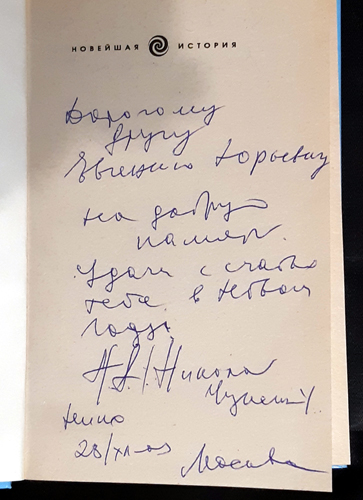 НОВЕЙШАЯ ИСТОРИЯ
Дорогому
другу
Евгению Юрьевичу
на добрую
память.
Удачи и счастья
тебе в Новом
году
Никола
28/XII-03
Москва